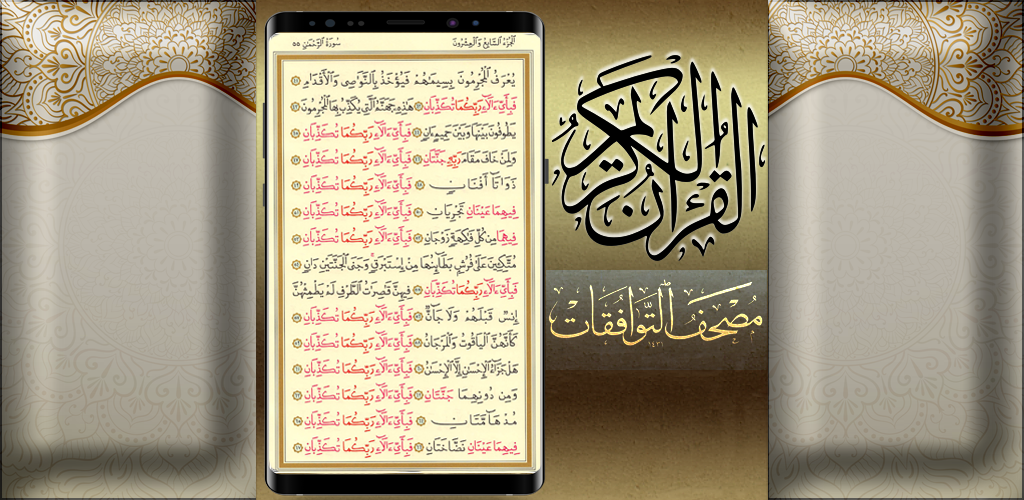 سُورَةُ الرَّحْمٰنِ ٥٥
اَلْجُزْءُ السَّابِعُ وَالْعِشْرُونَ
يُعْرَفُ الْمُجْرِمُونَ بِسِيمَاهُمْ فَيُؤْخَذُ بِالنَّوَاصِي وَالْأَقْدَامِ
فَبِأَيِّ اٰلَاءِ رَبِّكُمَا تُكَذِّبَانِ هٰذِهِ جَهَنَّمُ الَّتِي يُكَذِّبُ بِهَا الْمُجْرِمُونَ
يَطُوفُونَ بَيْنَهَا وَبَيْنَ حَمِيمٍ اٰنٍ فَبِأَيِّ اٰلَاءِ رَبِّكُمَا تُكَذِّبَانِ
وَلِمَنْ خَافَ مَقَامَ رَبِّهِ جَنَّتَانِ فَبِأَيِّ اٰلَاءِ رَبِّكُمَا تُكَذِّبَانِ
ذَوَاتَا أَفْنَانٍ فَبِأَيِّ اٰلَاءِ رَبِّكُمَا تُكَذِّبَانِ
فِيهِمَا عَيْنَانِ تَجْرِيَانِ فَبِأَيِّ اٰلَاءِ رَبِّكُمَا تُكَذِّبَانِ
فِيهِمَا مِنْ كُلِّ فَاكِهَةٍ زَوْجَانِ فَبِأَيِّ اٰلَاءِ رَبِّكُمَا تُكَذِّبَانِ
مُتَّكِئِينَ عَلٰى فُرُشٍ بَطَائِنُهَا مِنْ إِسْتَبْرَقٍ وَجَنَى الْجَنَّتَيْنِ دَانٍ
فَبِأَيِّ اٰلَاءِ رَبِّكُمَا تُكَذِّبَانِ فِيهِنَّ قَاصِرَاتُ الطَّرْفِ لَمْ يَطْمِثْهُنَّ
إِنْسٌ قَبْلَهُمْ وَلَا جَانٌّ فَبِأَيِّ اٰلَاءِ رَبِّكُمَا تُكَذِّبَانِ
كَأَنَّهُنَّ الْيَاقُوتُ وَالْمَرْجَانُ فَبِأَيِّ اٰلَاءِ رَبِّكُمَا تُكَذِّبَانِ
هَلْ جَزَاءُ الْإِحْسَانِ إِلَّا الْإِحْسَانُ فَبِأَيِّ اٰلَاءِ رَبِّكُمَا تُكَذِّبَانِ
وَمِنْ دُونِهِمَا جَنَّتَانِ فَبِأَيِّ اٰلَاءِ رَبِّكُمَا تُكَذِّبَانِ
مُدْهَامَّتَانِ فَبِأَيِّ اٰلَاءِ رَبِّكُمَا تُكَذِّبَانِ
فِيهِمَا عَيْنَانِ نَضَّاخَتَانِ فَبِأَيِّ اٰلَاءِ رَبِّكُمَا تُكَذِّبَانِ
القرآن الكريم
مُصْحَفُ التَّوَافُقَاتِ
١٤٣١